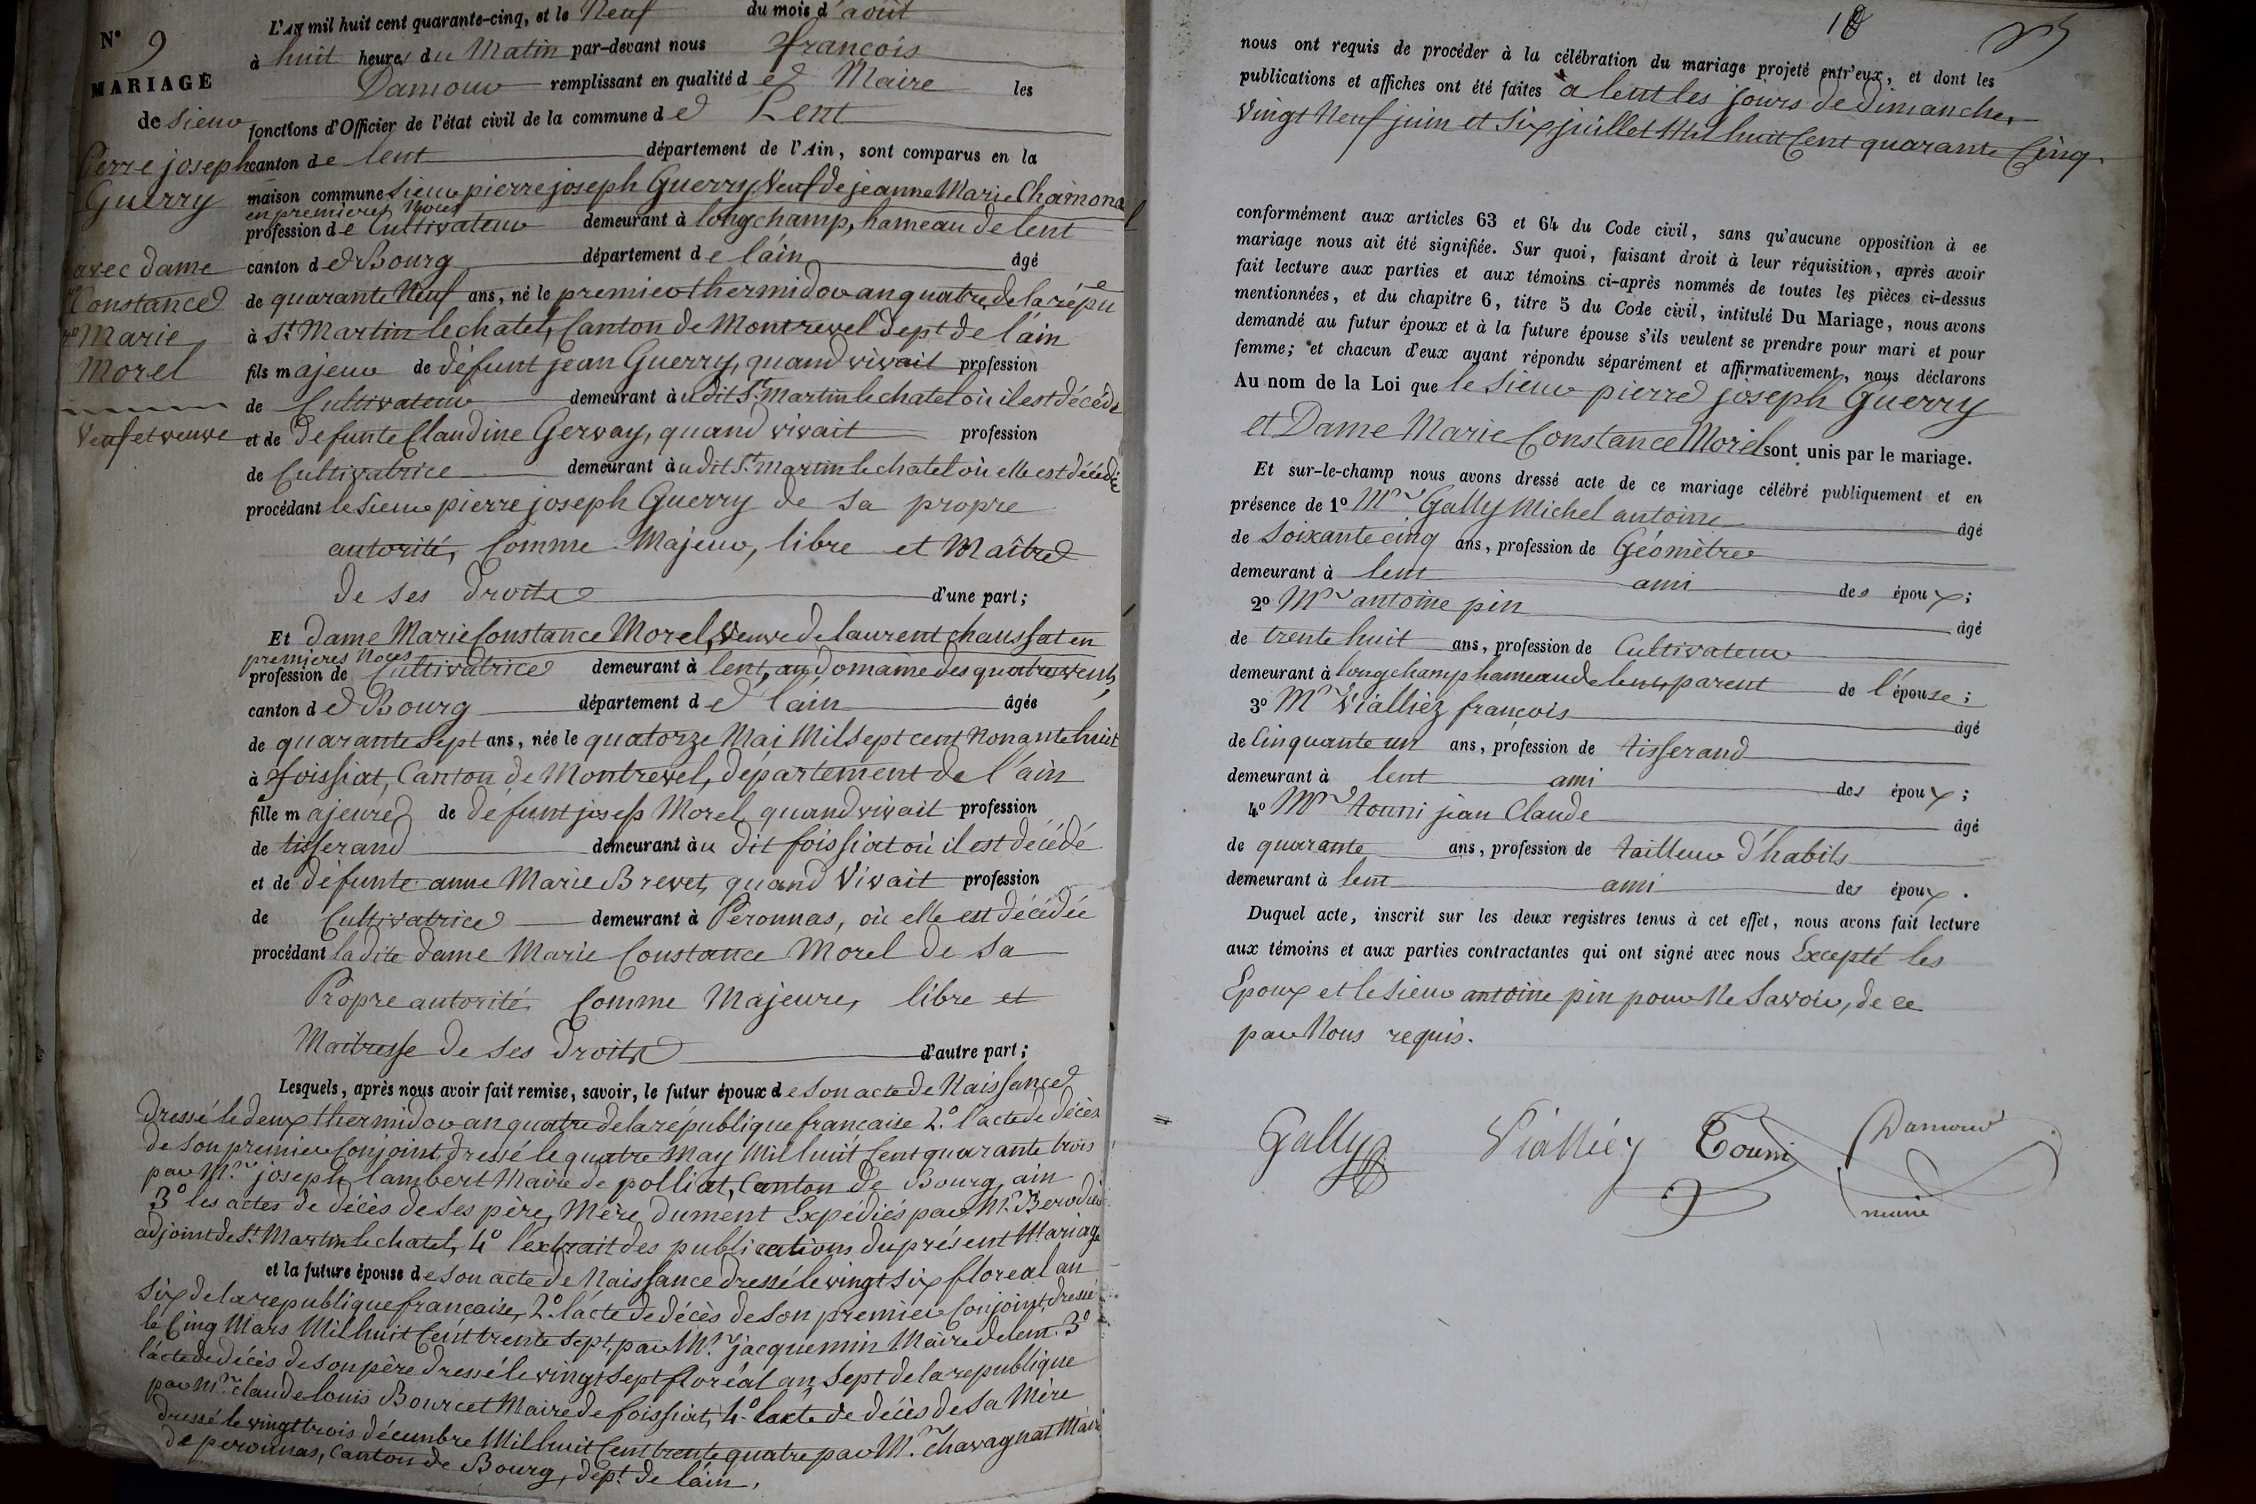 N° 9
MARIAGE
de sieur
Pierre joseph
Guerry
avec dame
Constance
Marie
Morel
Veuf et veuve
L'AN mil huit cent quarante-cinq, et le Neuf du mois d'août
à huit heures du Matin par-devant nous françois
Damour remplissant en qualité de Maire les
fonctions d'Officier de l'état civil de la commune de Lent
canton de lent département de l'Ain, sont comparus en la
maison commune Sieur pierre joseph Guerry, Veuf de jeanne Marie Chamonal
en premieres Noces
profession de Cultivateur demeurant à longchamp, hameau de lent
canton de Bourg département de l'ain âgé
de quarante Neuf ans, né le premier thermidor an quatre de la répu
à St. Martin le chatel, Canton de Montrevel dept de l'ain
fils majeur de défunt jean Guerry, quand vivait profession
de Cultivateur demeurant au dit St. Martin le chatel où il est décédé
et de defunte Claudine Gervay, quand vivait profession
de Cultivatrice demeurant au dit St. Martin le chatel où elle est décédée
procédant le Sieur pierre joseph Guerry de sa propre
autorité, Comme Majeur, libre et Maître
de ses droits d'une part;
Et dame Marie Constance Morel, Veuve de laurent chaussat en
premieres Noces
profession de Cultivatrice demeurant à lent, au domaine des quatre vents,
canton de Bourg département de l'ain âgée
de quarante sept ans, née le quatorze Mai Mil sept cent Nonante huit
à foissiat, Canton de Montrevel, département de l'ain
fille majeure de défunt joseph Morel, quand vivait profession
de tisserand demeurant au dit foissiat où il est décédé
et de défunte anne Marie Brevet, quand Vivait profession
de Cultivatrice demeurant à Peronnas, où elle est décédée
procédant ladite dame Marie Constance Morel de sa
Propre autorité, Comme Majeure, libre et
Maitresse de ses droits d'autre part;
Lesquels, après nous avoir fait remise, savoir, le futur époux de son acte de Naissance
dressé le deux thermidor an quatre de la république française 2.° l'acte de décès
de son premier Conjoint, dressé le quatre May Mil huit Cent quarante trois
par Mr. joseph lambert Maire de polliat, Canton de Bourg, ain
3° les actes de décès de ses père, Mère dument Expediés par Mr.
adjoint de St. Martin le chatel, 4° l'extrait des publications du présent Mariage
et la future épouse de son acte de Naissance dressé le vingt six floreal an
Six de la republique française, 2.° l'acte de décès de son premier Conjoint, dressé
le Cinq Mars Mil huit Cent trente sept, par Mr. jacquemin Maire de lent. 3°
l'acte de décès de son père dressé le vingt sept floréal an sept de la republique
par Mr. claude louis Bourcet Maire de foissiat, 4.° l'acte de décès de sa Mère
dressé le vingt trois décembre Mil huit Cent trente quatre par Mr. Chavagnat Maire
de peronnas, Canton de Bourg, dépt. de l'ain.
nous ont requis de procéder à la célébration du mariage projeté entr'eux, et dont les
publications et affiches ont été faites à lent les jours de dimanche,
Vingt Neuf juin et Six juillet Mil huit Cent quarante Cinq.
conformément aux articles 63 et 64 du Code civil, sans qu'aucune opposition à ce
mariage nous ait été signifiée. Sur quoi, faisant droit à leur réquisition, après avoir
fait lecture aux parties et aux témoins ci-après nommés de toutes les pièces ci-dessus
mentionnées, et du chapitre 6, titre 5 du Code civil, intitulé Du Mariage, nous avons
demandé au futur époux et à la future épouse s'ils veulent se prendre pour mari et pour
femme; et chacun d'eux ayant répondu séparément et affirmativement, nous déclarons
Au nom de la Loi que le Sieur pierre joseph Guerry
et Dame Marie Constance Morel sont unis par le mariage.
Et sur-le-champ nous avons dressé acte de ce mariage célébré publiquement et en
présence de 1° Mr Gally Michel antoine âgé
de Soixante cinq ans, profession de Géomètre
demeurant à lent ami des époux;
2° Mr antoine pin âgé
de trente huit ans, profession de Cultivateur
demeurant à longchamp hameau de lent, parent de l'épouse;
3° Mr Vialliez françois âgé
de Cinquante un ans, profession de tisserand
demeurant à lent ami des époux;
4° Mr touni jean Claude âgé
de quarante ans, profession de tailleur d'habits
demeurant à lent ami des époux.
Duquel acte, inscrit sur les deux registres tenus à cet effet, nous avons fait lecture
aux témoins et aux parties contractantes qui ont signé avec nous Excepté les
Epoux et le sieur antoine pin pour Ne Savoir, de ce
par Nous requis.
Gally Vialliez Touni Damour
maire